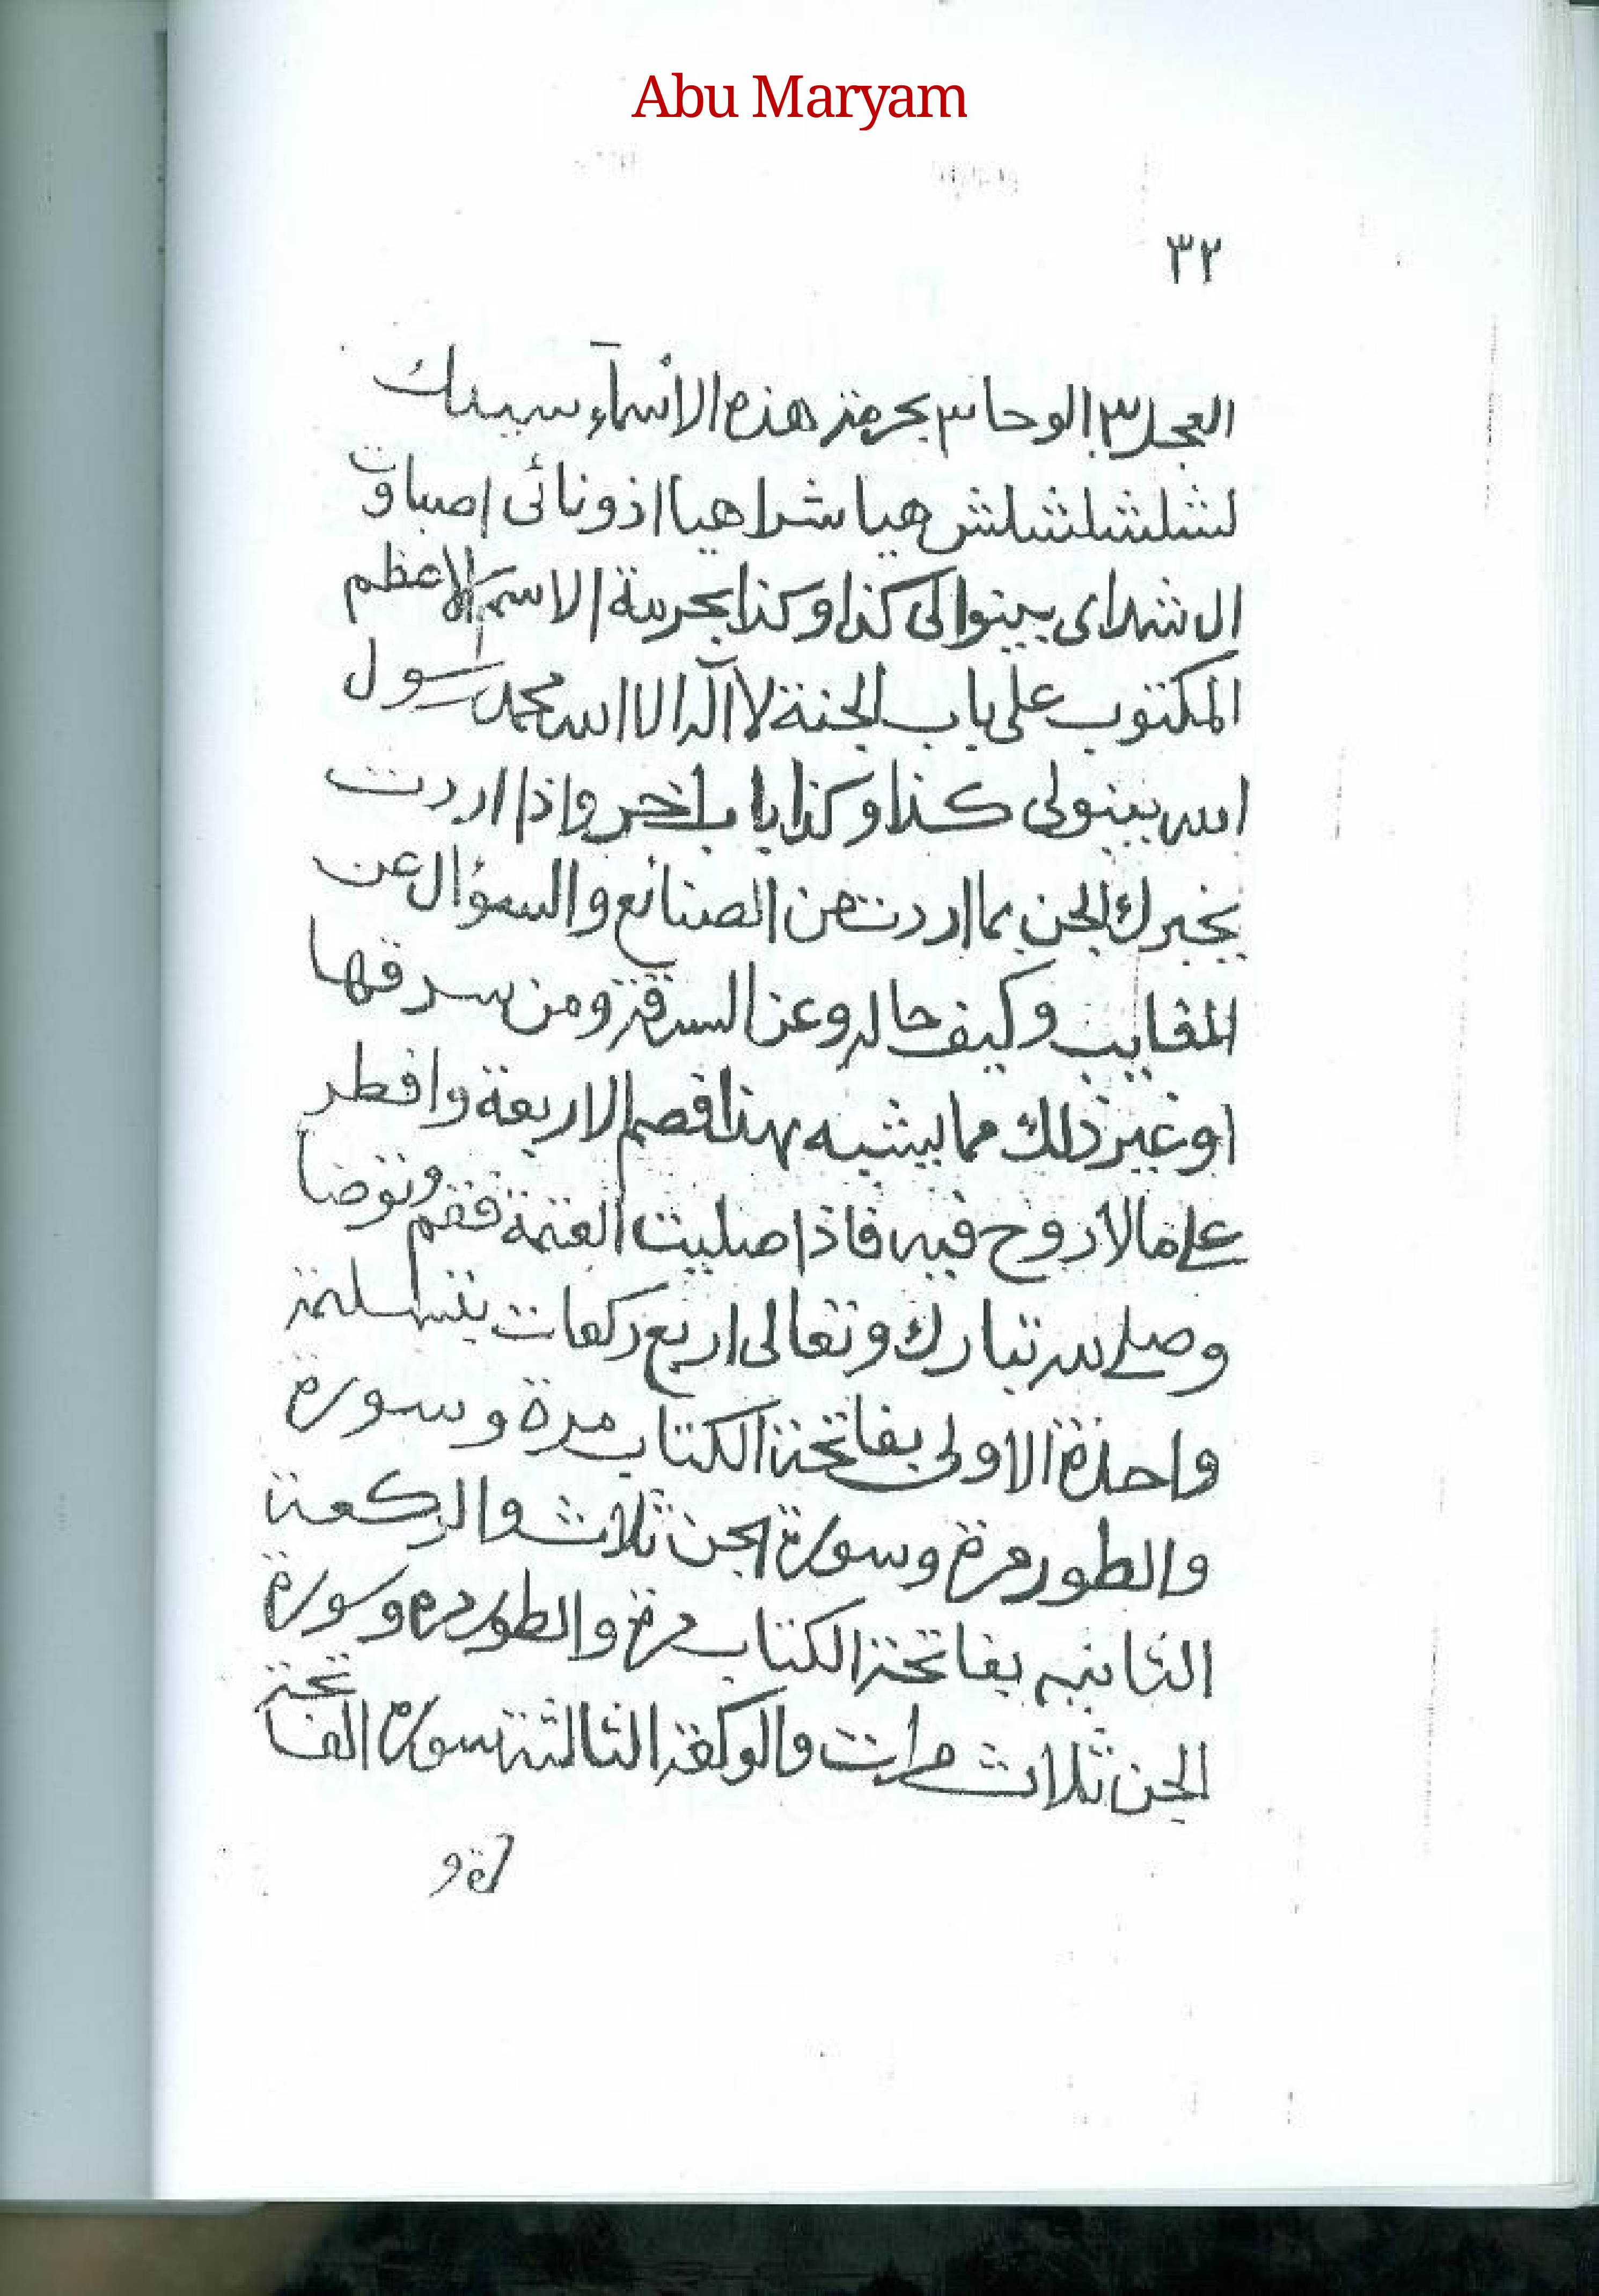 Abu Maryam
٣٢
العجل ٣ الوحا ٣ بحرمة هذه الاسمآء
هيا شراهيا اذونائى اصباوت
ال شداى بينوا لى كذا وكذا بحرمة الاسم الاعظم
المكتوب على باب الجنة لا آله الا الله محمد رسول
الله بينو لى كذا وكذا باب اخر واذا اردت
يخبرك الجن بما اردت من الصنائع والسوؤال عن
المغايب وكيف حاله وعن السرقة ومن سرقها
او غير ذلك مما يشبه بهذا فصم الاربعة وافطر
على مالا روح فيه فاذا صليت العتمة فقم وتوضا
وصلى لله تبارك وتعالى اربع ركعات بتسلمة
واحدة الاولى بفاتحة الكتاب مرة وسورة
والطور مرة وسورة الجن ثلاث والركعة
الثانيه بفاتحة الكتاب مرة والطور مره وسورة
الجن ثلاث مرات والركعة الثالثة سورة الفاتحة